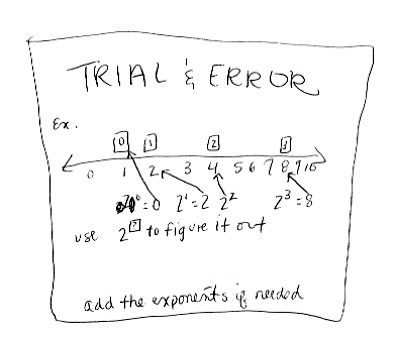 TRIAL & ERROR
Ex.
0 1 2 3
0 1 2 3 4 5 6 7 8 9 10
2⁰=0 2¹=2 2² 2³=8
use 2^[?] to figure it out
add the exponents if needed